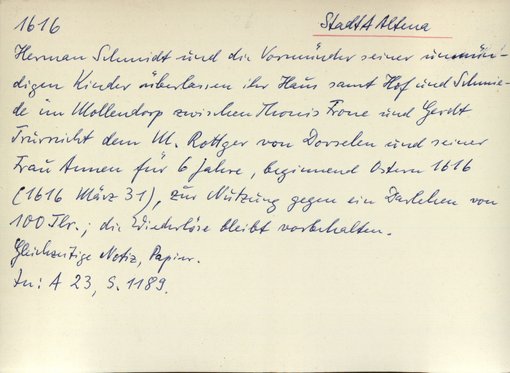 1616 StadtA Altena
Herman Schmidt und die Vormünder seiner unmün-
digen Kinder überlassen ihr Haus samt Hof und Schmie-
de im Mollendorp zwischen Thonis Frone und Gerdt
dem M. Rottger von Dorselen und seiner
Frau Annen für 6 Jahre, beginnend Ostern 1616
(1616 März 31), zur Nutzung gegen ein Darlehen von
100 Tlr.; die Wiederlöse bleibt vorbehalten.
Gleichzeitige Notiz, Papier.
In: A 23, S. 1189.